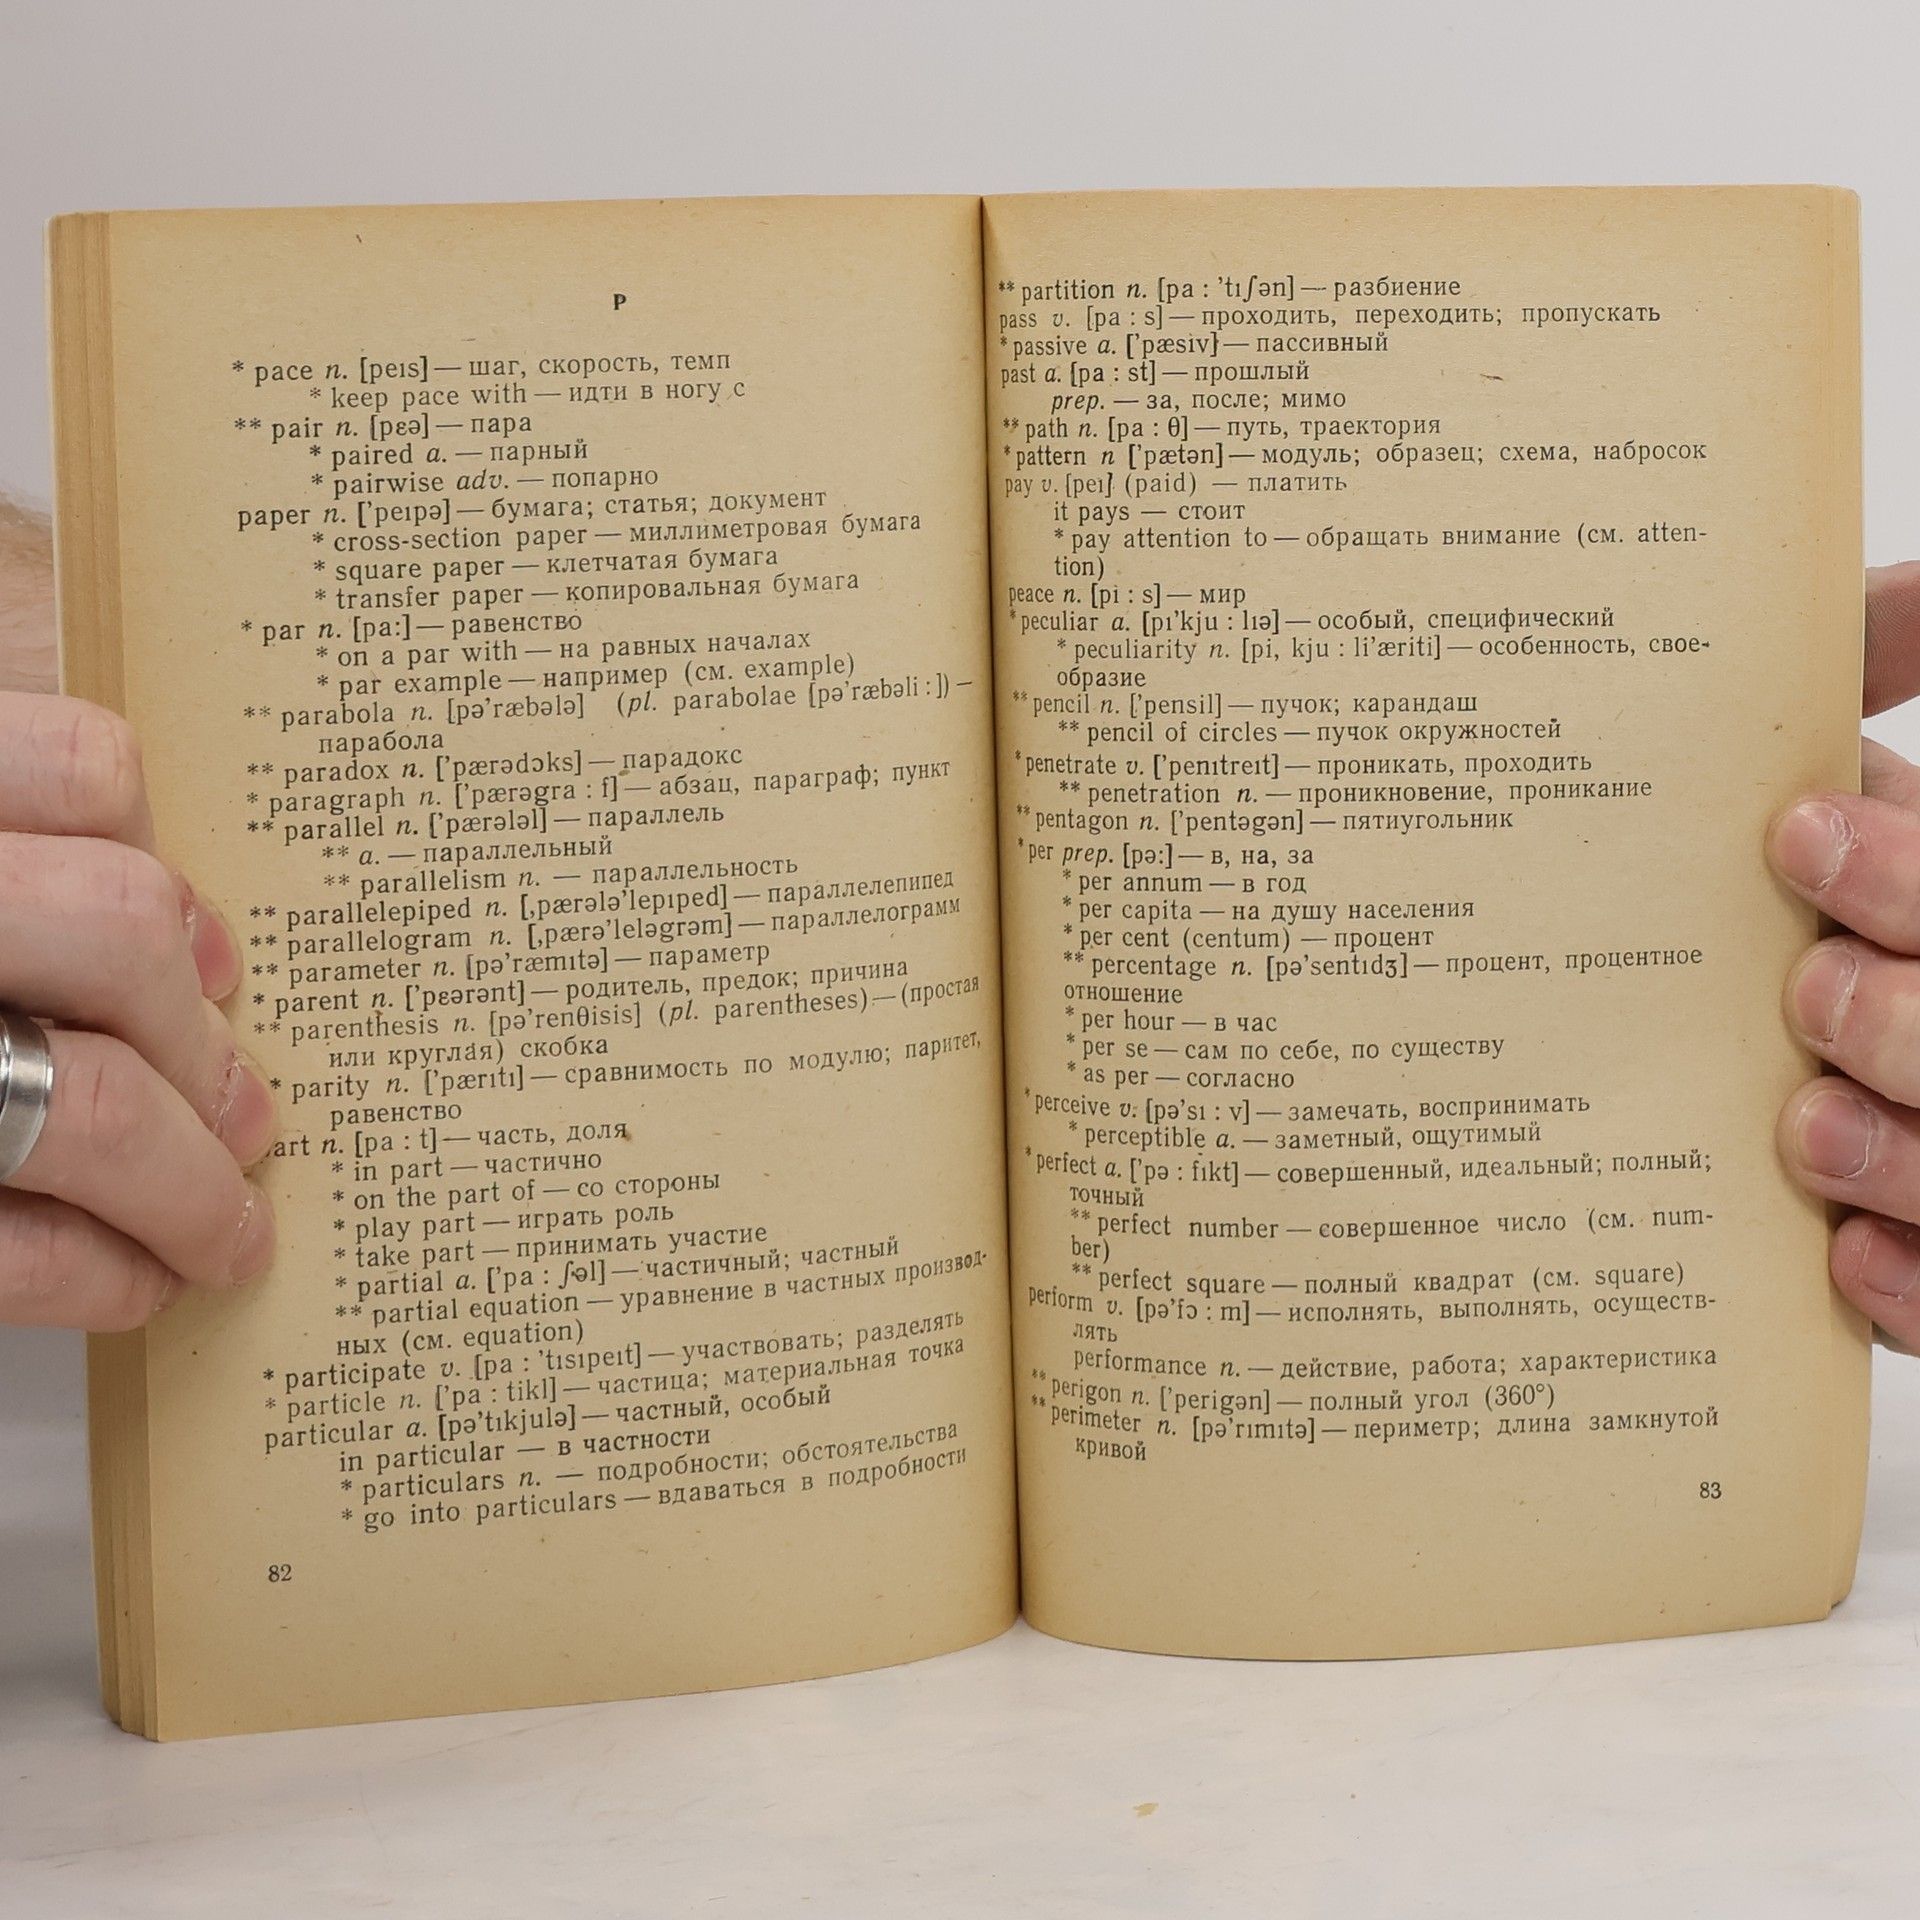 P
* pace n. [peıs] — шаг, скорость, темп
* keep pace with — идти в ногу с
** pair n. [pɛə] — пара
* paired a. — парный
* pairwise adv. — попарно
paper n. ['peıpə] — бумага; статья; документ
* cross-section paper — миллиметровая бумага
* square paper — клетчатая бумага
* transfer paper — копировальная бумага
* par n. [pa:] — равенство
* on a par with — на равных началах
* par example — например (см. example)
** parabola n. [pə'ræbələ] (pl. parabolae [pə'ræbəli:]) —
парабола
** paradox n. ['pærədɔks] — парадокс
* paragraph n. ['pærəgra : f] — абзац, параграф; пункт
** parallel n. ['pærələl] — параллель
** a. — параллельный
** parallelism n. — параллельность
** parallelepiped n. [,pærələ'lepıped] — параллелепипед
** parallelogram n. [,pærə'leləgrəm] — параллелограмм
** parameter n. [pə'ræmıtə] — параметр
* parent n. ['pɛərənt] — родитель, предок; причина
** parenthesis n. [pə'renθisis] (pl. parentheses) — (простая
или круглая) скобка
* parity n. ['pærıtı] — сравнимость по модулю; паритет,
равенство
art n. [pa : t] — часть, доля
* in part — частично
* on the part of — со стороны
* play part — играть роль
* take part — принимать участие
* partial a. ['pa : ʃəl] — частичный; частный
** partial equation — уравнение в частных производ-
ных (см. equation)
* participate v. [pa : 'tısıpeıt] — участвовать; разделять
* particle n. ['pa : tikl] — частица; материальная точка
particular a. [pə'tıkjulə] — частный, особый
in particular — в частности
* particulars n. — подробности; обстоятельства
* go into particulars — вдаваться в подробности
82
** partition n. [pa : 'tıʃən] — разбиение
pass v. [pa : s] — проходить, переходить; пропускать
* passive a. ['pæsiv] — пассивный
past a. [pa : st] — прошлый
prep. — за, после; мимо
** path n. [pa : θ] — путь, траектория
* pattern n ['pætən] — модуль; образец; схема, набросок
pay v. [peı] (paid) — платить
it pays — стоит
* pay attention to — обращать внимание (см. atten-
tion)
peace n. [pi : s] — мир
* peculiar a. [pı'kju : lıə] — особый, специфический
* peculiarity n. [pi, kju : li'æriti] — особенность, свое-
образие
** pencil n. ['pensil] — пучок; карандаш
** pencil of circles — пучок окружностей
* penetrate v. ['penıtreıt] — проникать, проходить
** penetration n. — проникновение, проникание
** pentagon n. ['pentəgən] — пятиугольник
* per prep. [pə:] — в, на, за
* per annum — в год
* per capita — на душу населения
* per cent (centum) — процент
** percentage n. [pə'sentıdʒ] — процент, процентное
отношение
* per hour — в час
* per se — сам по себе, по существу
* as per — согласно
* perceive v. [pə'sı : v] — замечать, воспринимать
* perceptible a. — заметный, ощутимый
* perfect a. ['pə : fıkt] — совершенный, идеальный; полный;
точный
** perfect number — совершенное число (см. num-
ber)
** perfect square — полный квадрат (см. square)
perform v. [pə'fɔ : m] — исполнять, выполнять, осуществ-
лять
performance n. — действие, работа; характеристика
** perigon n. ['perigən] — полный угол (360°)
** perimeter n. [pə'rımıtə] — периметр; длина замкнутой
кривой
83